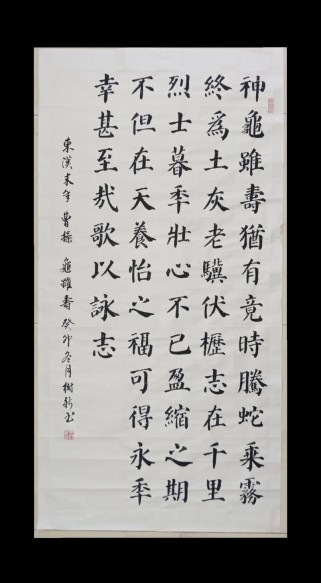 神龜雖壽猶有竟時騰蛇乘霧
終爲土灰老驥伏櫪志在千里
烈士暮秊壯心不已盈縮之期
不但在天養怡之福可得永秊
幸甚至哉歌以詠志
東漢末年 曹操 龜雖壽 癸卯冬月樹书